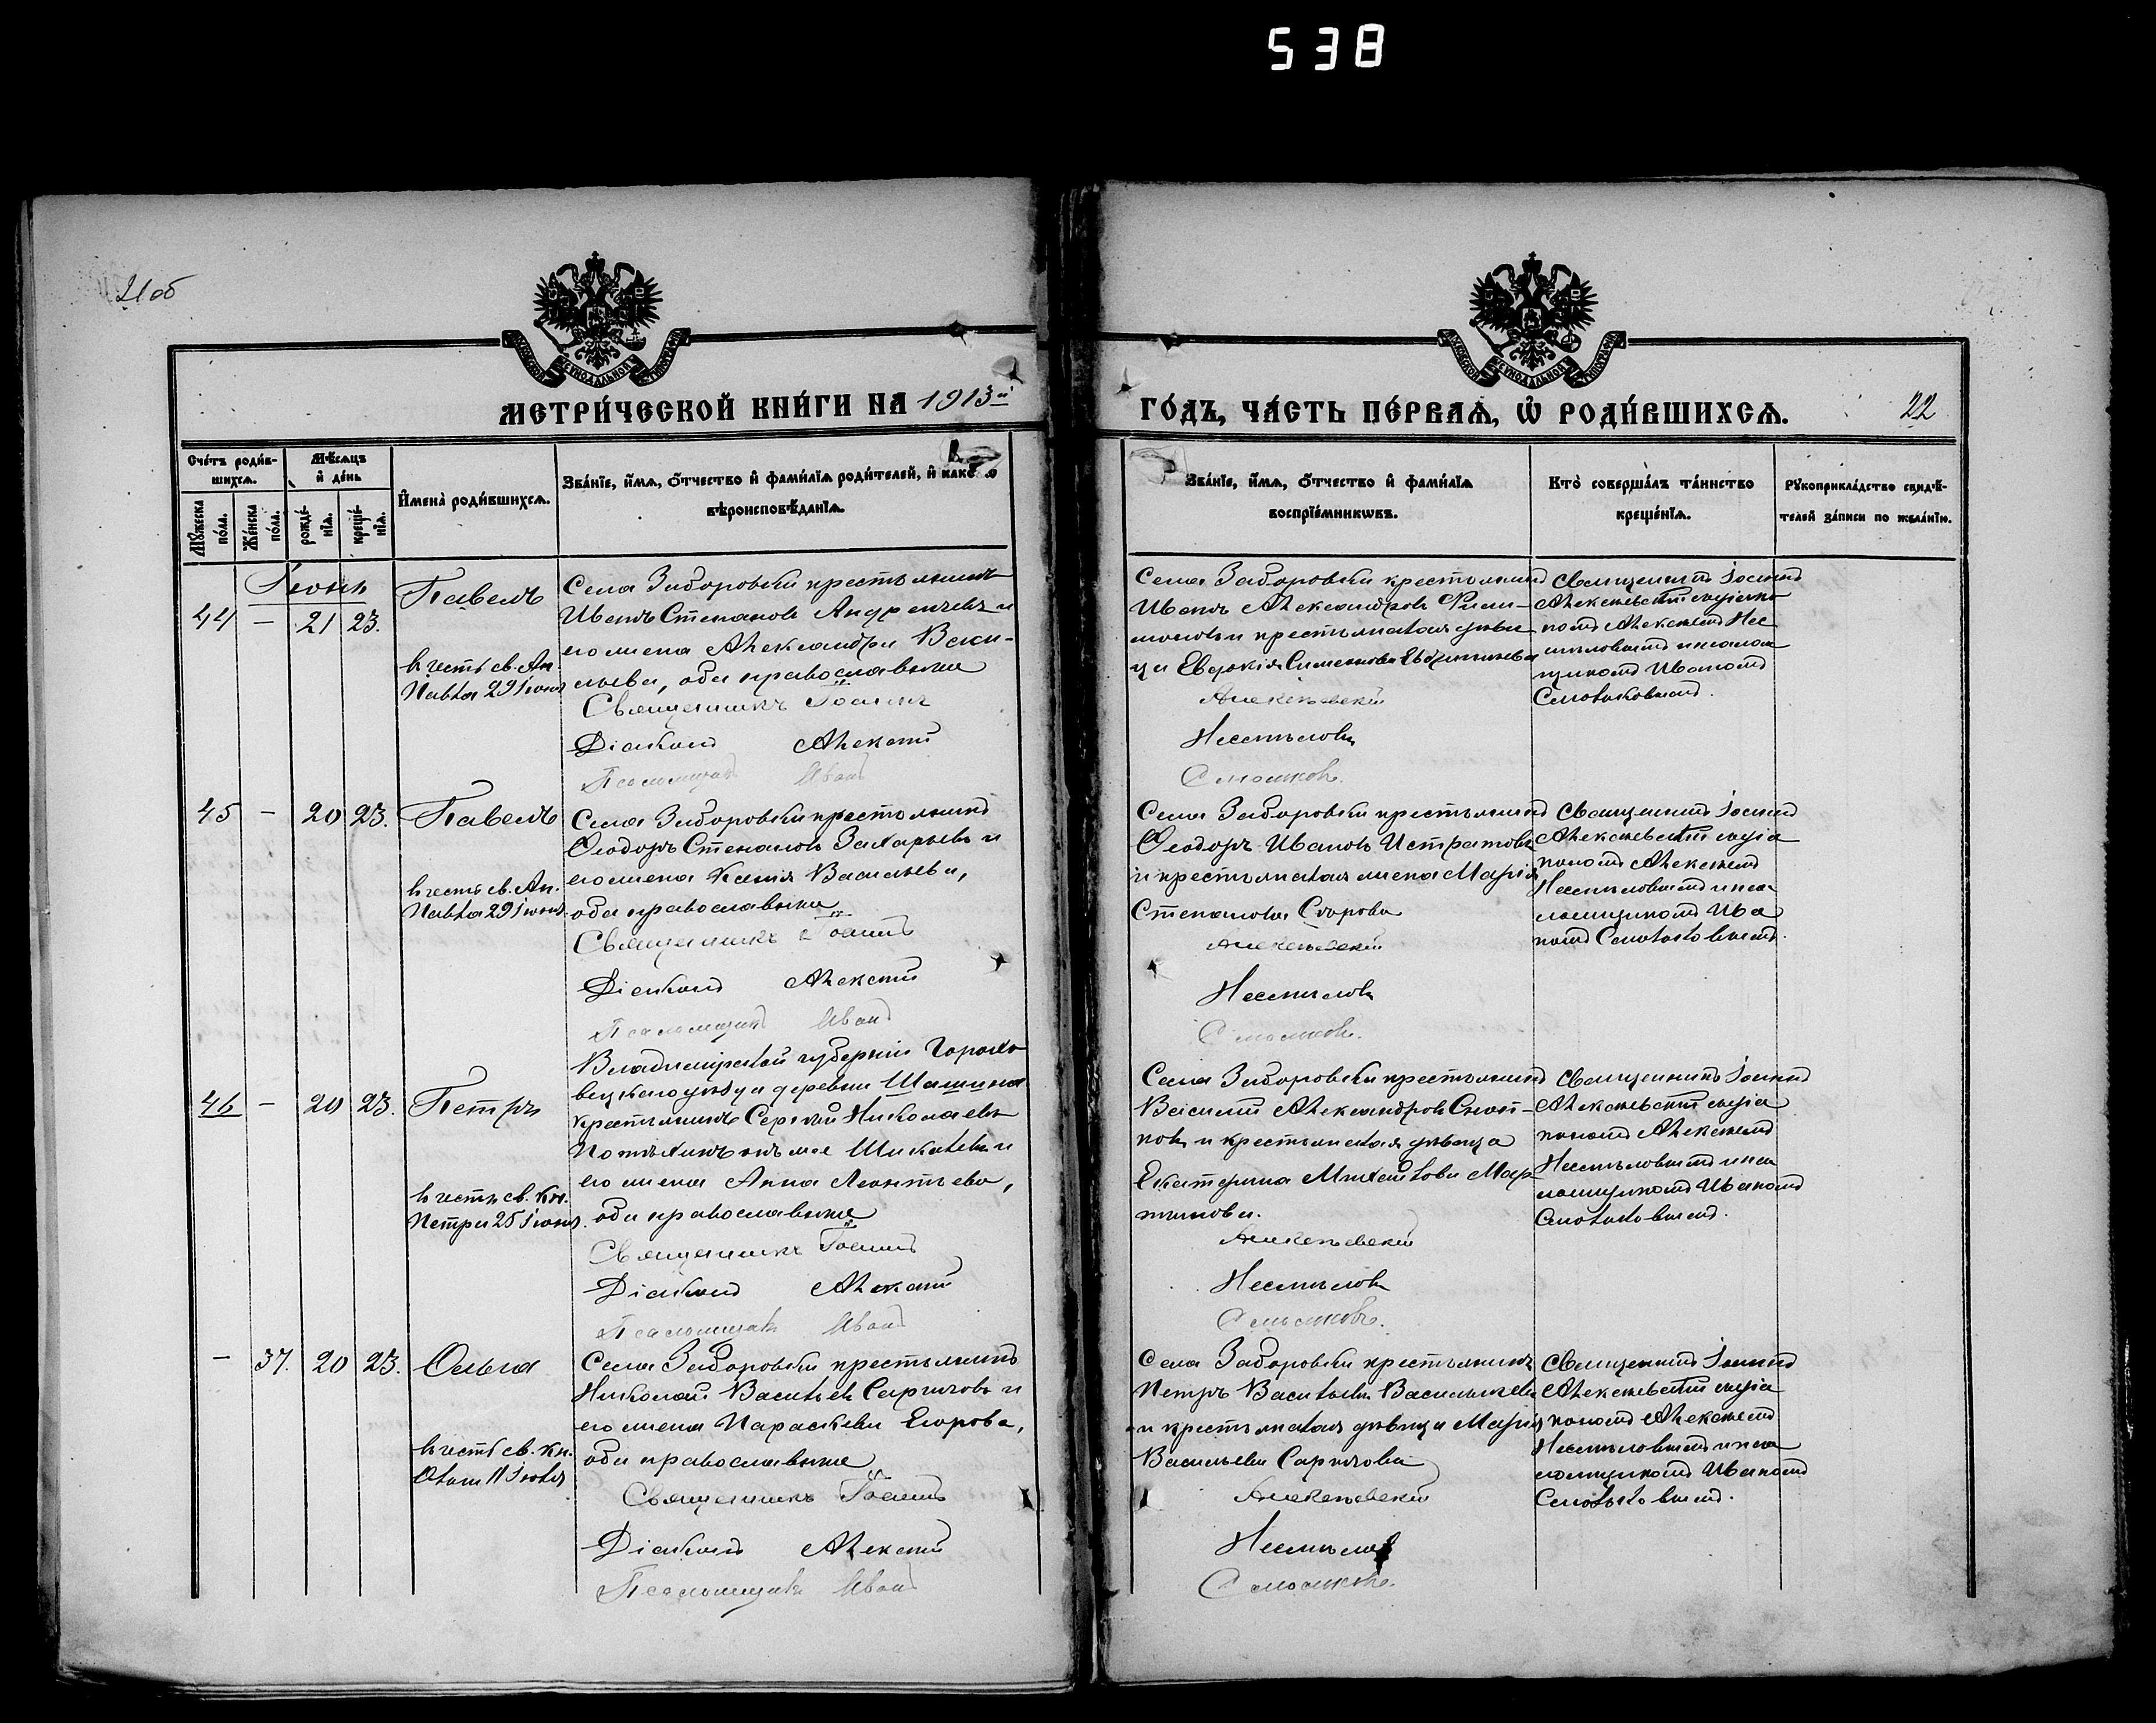 538
21 об
МЕТРИ́ЧЕСКОЙ КНИ́ГИ НА 1913й
ГО́ДЪ, ЧА́СТЬ ПЕ́РВАѦ, Ѡ РОДИ́ВШИХСѦ.
22
Сче́тъ роди́вшихсѧ.
Мѣ́сѧцъ и҆ де́нь
Мꙋ́жеска по́ла.
Же́нска по́ла.
рожде́нїѧ.
креще́нїѧ.
И҆мена̀ роди́вшихсѧ.
Зва́нїе, и҆́мѧ, ѻ҆́тчество и҆ фами́лїѧ роди́телей, и҆ како́гѡ
вѣроисповѣ́данїѧ.
Зва́нїе, и҆́мѧ, ѻ҆́тчество и҆ фами́лїѧ
воспрїе́мникѡвъ.
Кто̀ соверша́лъ та́инство
креще́нїѧ.
Рꙋкоприкла́дство свидѣ́-
телей за́писи по жела́нїю.
Іюнь
44 — 21 23.
Павелъ
въ честь св. Ап.
Павла 29 Іюня
Села Заборовки крестьянинъ
Иванъ Степановъ и
его жена Александра Васи-
льева, оба православные
Священникъ Іоаннъ
Діаконъ Алексѣй
Псаломщикъ Иванъ
Села Заборовки крестьянинъ
Иванъ Александровъ Фили-
моновъ и крестьянская дѣви
ца Евдокія Симеонова
Алексѣевскій
Несмѣловъ
Смольковъ.
Священникъ Іоаннъ
Алексѣевскій съ діако
номъ Алексѣемъ Нес
мѣловымъ и псалом
щикомъ Иваномъ
Смольковымъ.
45 — 20 23.
Павелъ
въ честь св. Ап.
Павла 29 Іюня.
Села Заборовки крестьянинъ
Ѳеодоръ Степановъ Захарьевъ и
его жена Ксенія Васильева,
оба православные
Священникъ Іоаннъ
Діаконъ Алексѣй
Псаломщикъ Иванъ
Села Заборовки крестьянинъ
Ѳеодоръ Ивановъ Истратовъ
и крестьянская жена Марія
Степанова
Алексѣевскій
Несмѣловъ
Смольковъ.
Священникъ Іоаннъ
Алексѣевскій съ діа
кономъ Алексѣемъ
Несмѣловымъ и пса
ломщикомъ Ива
номъ Смольковымъ.
46 — 20 23.
Петръ
въ честь св. Кн.
Петра 25 Іюня.
Владимірской губерніи Горохо
вецкаго уѣзда деревни
крестьянинъ Сергѣй Николаевъ
и
его жена Анна Леонтьева,
оба православные
Священникъ Іоаннъ
Діаконъ Алексѣй
Псаломщикъ Иванъ
Села Заборовки крестьянинъ
Василій Александровъ
и крестьянская дѣвица
Екатерина Михайлова Мар-
тынова.
Алексѣевскій
Несмѣловъ
Смольковъ.
Священникъ Іоаннъ
Алексѣевскій съ діа
кономъ Алексѣемъ
Несмѣловымъ и пса
ломщикомъ Иваномъ
Смольковымъ.
— 37. 20 23.
Ольга
въ честь св. кн.
Ольги 11 Іюля
Села Заборовки крестьянинъ
Николай Васильевъ и
его жена Параскева Егорова,
оба православные
Священникъ Іоаннъ
Діаконъ Алексѣй
Псаломщикъ Иванъ
Села Заборовки крестьянинъ
Петръ Васильевъ
и крестьянская дѣвица Марія
Васильева
Алексѣевскій
Несмѣловъ
Смольковъ.
Священникъ Іоаннъ
Алексѣевскій съ діа
кономъ Алексѣемъ
Несмѣловымъ и пса
ломщикомъ Иваномъ
Смольковымъ.